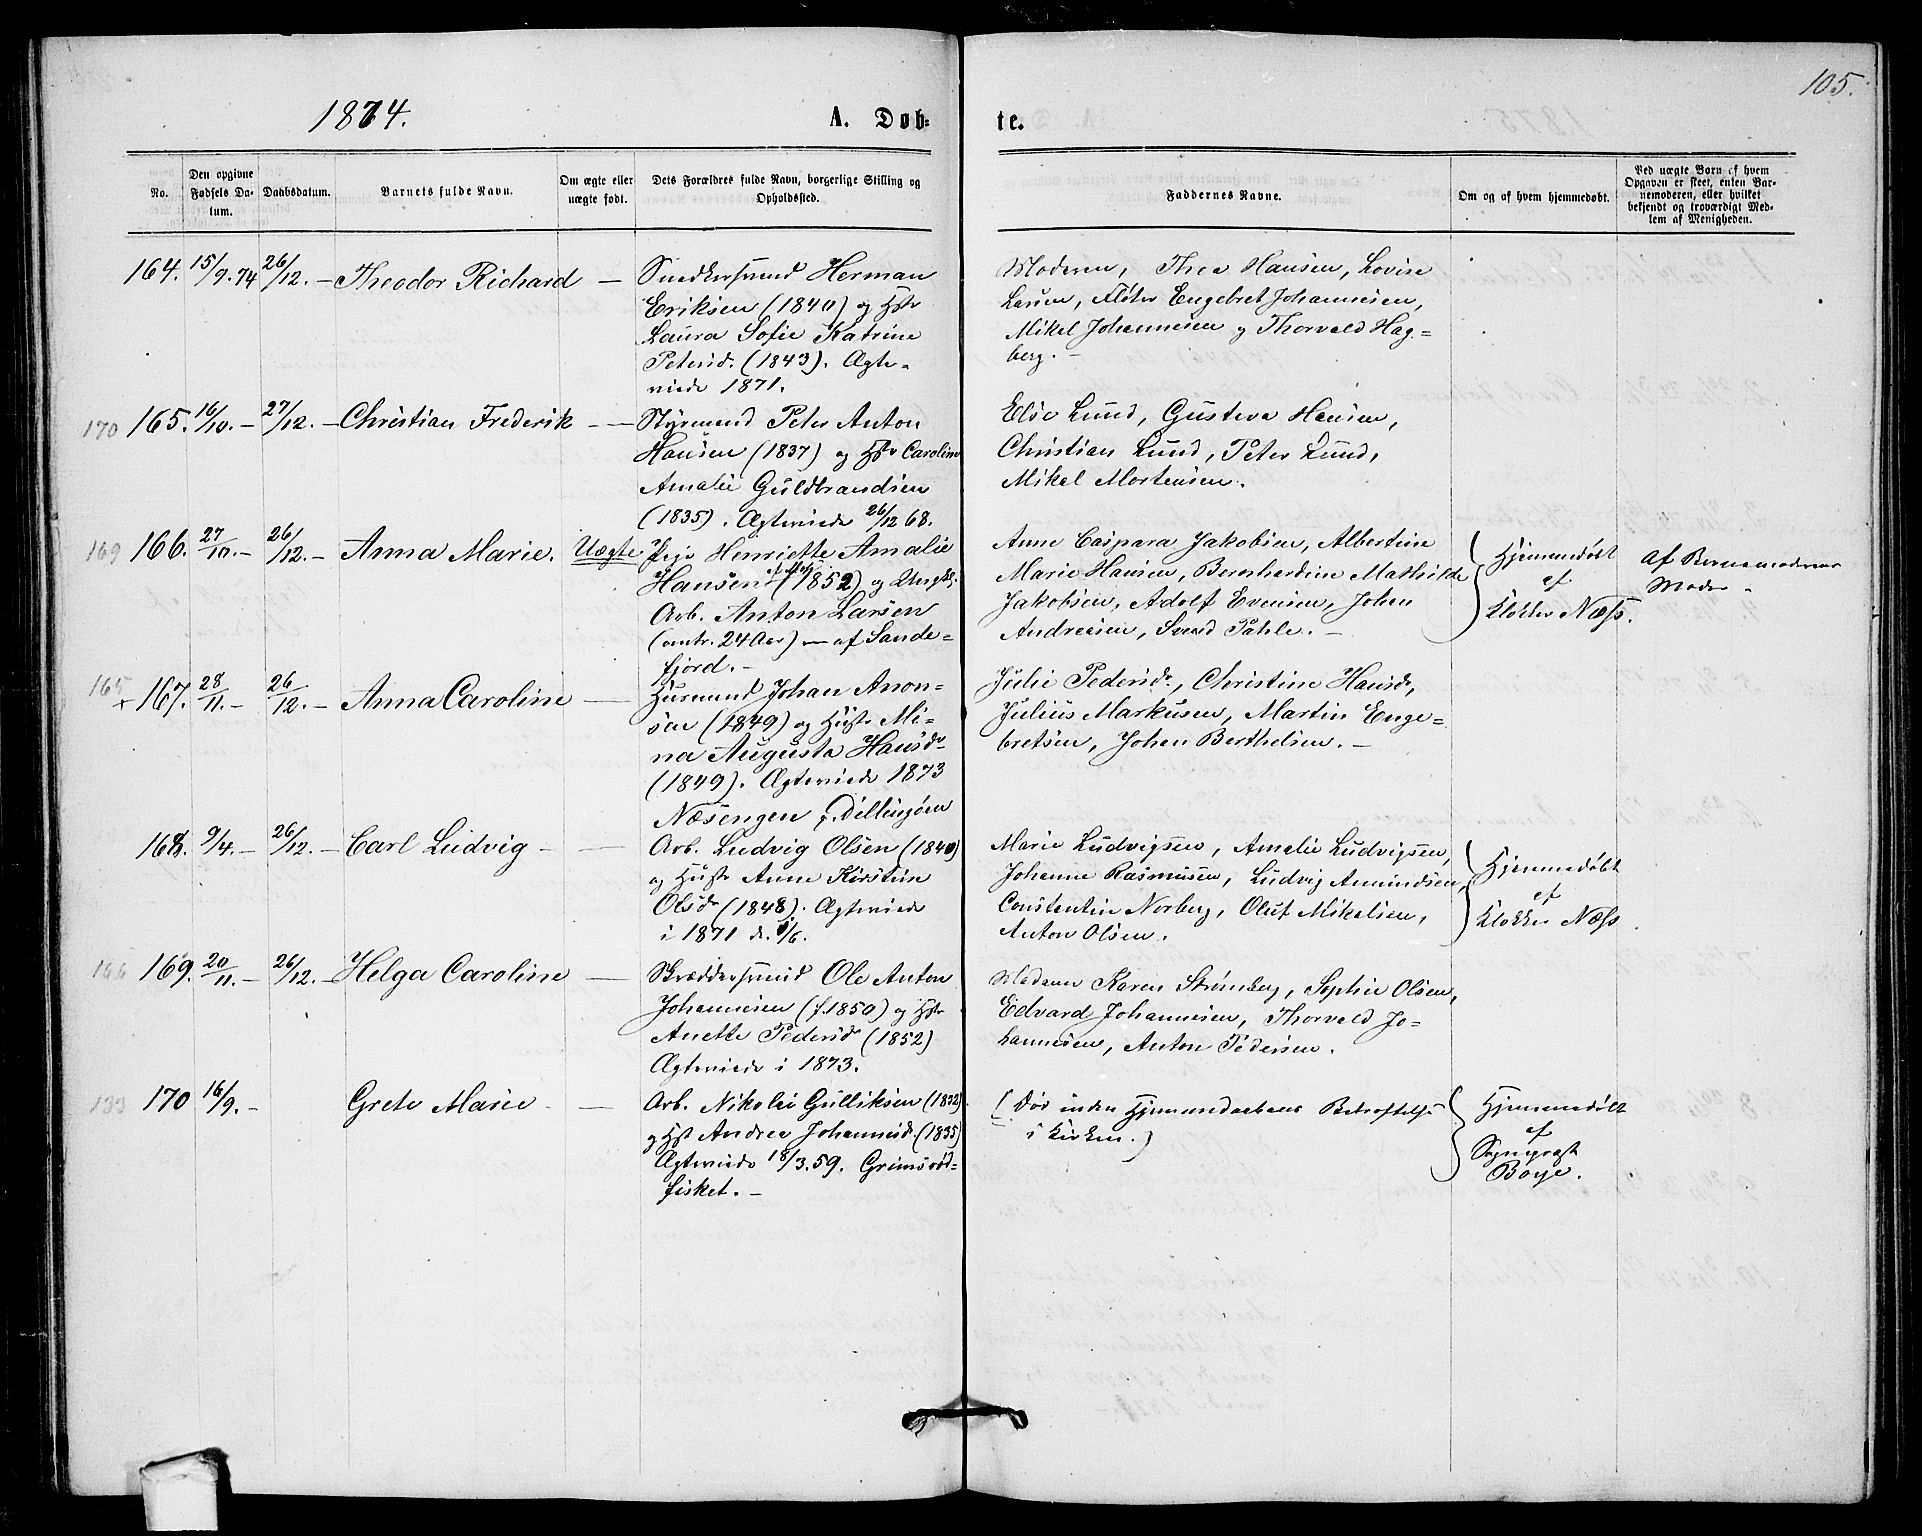 105.
1874.
A. Døb-
te.
No.
Den opgivne Fødsels Da-
tum.
Daabsdatum.
Barnets fulde Navn.
Om ægte eller
uægte født.
Dets Forældres fulde Navn, borgerlige Stilling og
Opholdssted.
Faddernes Navne.
Om og af hvem hjemmedøbt.
Ved uægte Børn af hvem
Opgaven er skeet, enten Bar-
nemoderen, eller hvilket
bekjendt og troværdigt Med-
lem af Menigheden.
164. 15/9. 74 26/12. — Theodor Richard —
Snedkersvend Herman
Eriksen (1840) og Hstr
Laura Sofie Katrine
Petersd. (1843). Ægte-
viede 1871.
Moderen, Thea Hansen, Lovise
Larsen, Fløter Engebret Johannesen,
Mikal Johannesen og Thorvald Hag-
berg. —
170 165. 16/10. — 27/12. — Christian Frederik — —
Styrmand Peter Anton
Hansen (1837) og Hstr Caroline
Amalie Guldbrandsen
(1835). Ægteviede 26/12 68.
Else Lund, Gustava Hansen,
Christian Lund, Peter Lund,
Mikal Mortensen.
169 166. 27/10. — 26/12. — Anna Marie. Uægte
Pige Henriette Amalie
Hansen (1852) og Ungk.
Arb. Anton Larsen
(omtr. 24 Aar) — af Sande-
fjord. —
Anne Caspara Jakobsen, Albertine
Marie Hansen, Bernhardine Mathilde
Jakobsen, Adolf Evensen, Johan
Andreasen, Svend Pahle. —
Hjemmedøbt
af
Klokker Næss.
Af Barnemoderens
Moder.
165 + 167. 28/11. — 26/12. — Anna Caroline —
Husmand Johan Anon-
sen (1849) og Hustr Mi-
na Augusta Hansdr
(1849). Ægteviede 1873
Næsengen p. Dillingøen
Julie Pedersdr, Christine Hansdr,
Julius Markusen, Martin Enge-
bretsen, Johan Berthelsen. —
168. 9/4. — 26/12. — Carl Ludvig — —
Arb. Ludvig Olsen (1840)
og Hustr Anne Kirstine
Olsdr (1848). Ægteviede
i 1871 d. 1/6.
Marie Ludvigsen, Amalie Ludvigsen,
Johanne Rasmussen, Ludvig Amundsen,
Constantin Norberg, Oluf Mikalsen,
Anton Olsen.
Hjemmedøbt
af
Klokker Næss.
166 169. 20/11. — 26/12. — Helga Caroline —
Skræddersvend Ole Anton
Johannesen (f. 1850) og Hstr
Anette Pedersdr (1852)
Ægteviede i 1873.
Madam Karen Strømberg, Sophie Olsen,
Edvard Johannesen, Thorvald Jo-
hannesen, Anton Pedersen.
133 170 16/9. — Grete Marie — —
Arb. Nikolai Gulliksen (1832)
og Hst Andrea Johannesd. (1835)
Ægteviede 18/3. 59. Grimsrød-
fisket. —
(Død inden Hjemmedaabens Bekræftelse
i Kirken.)
Hjemmedøbt
af
Sogneprest
Boye.